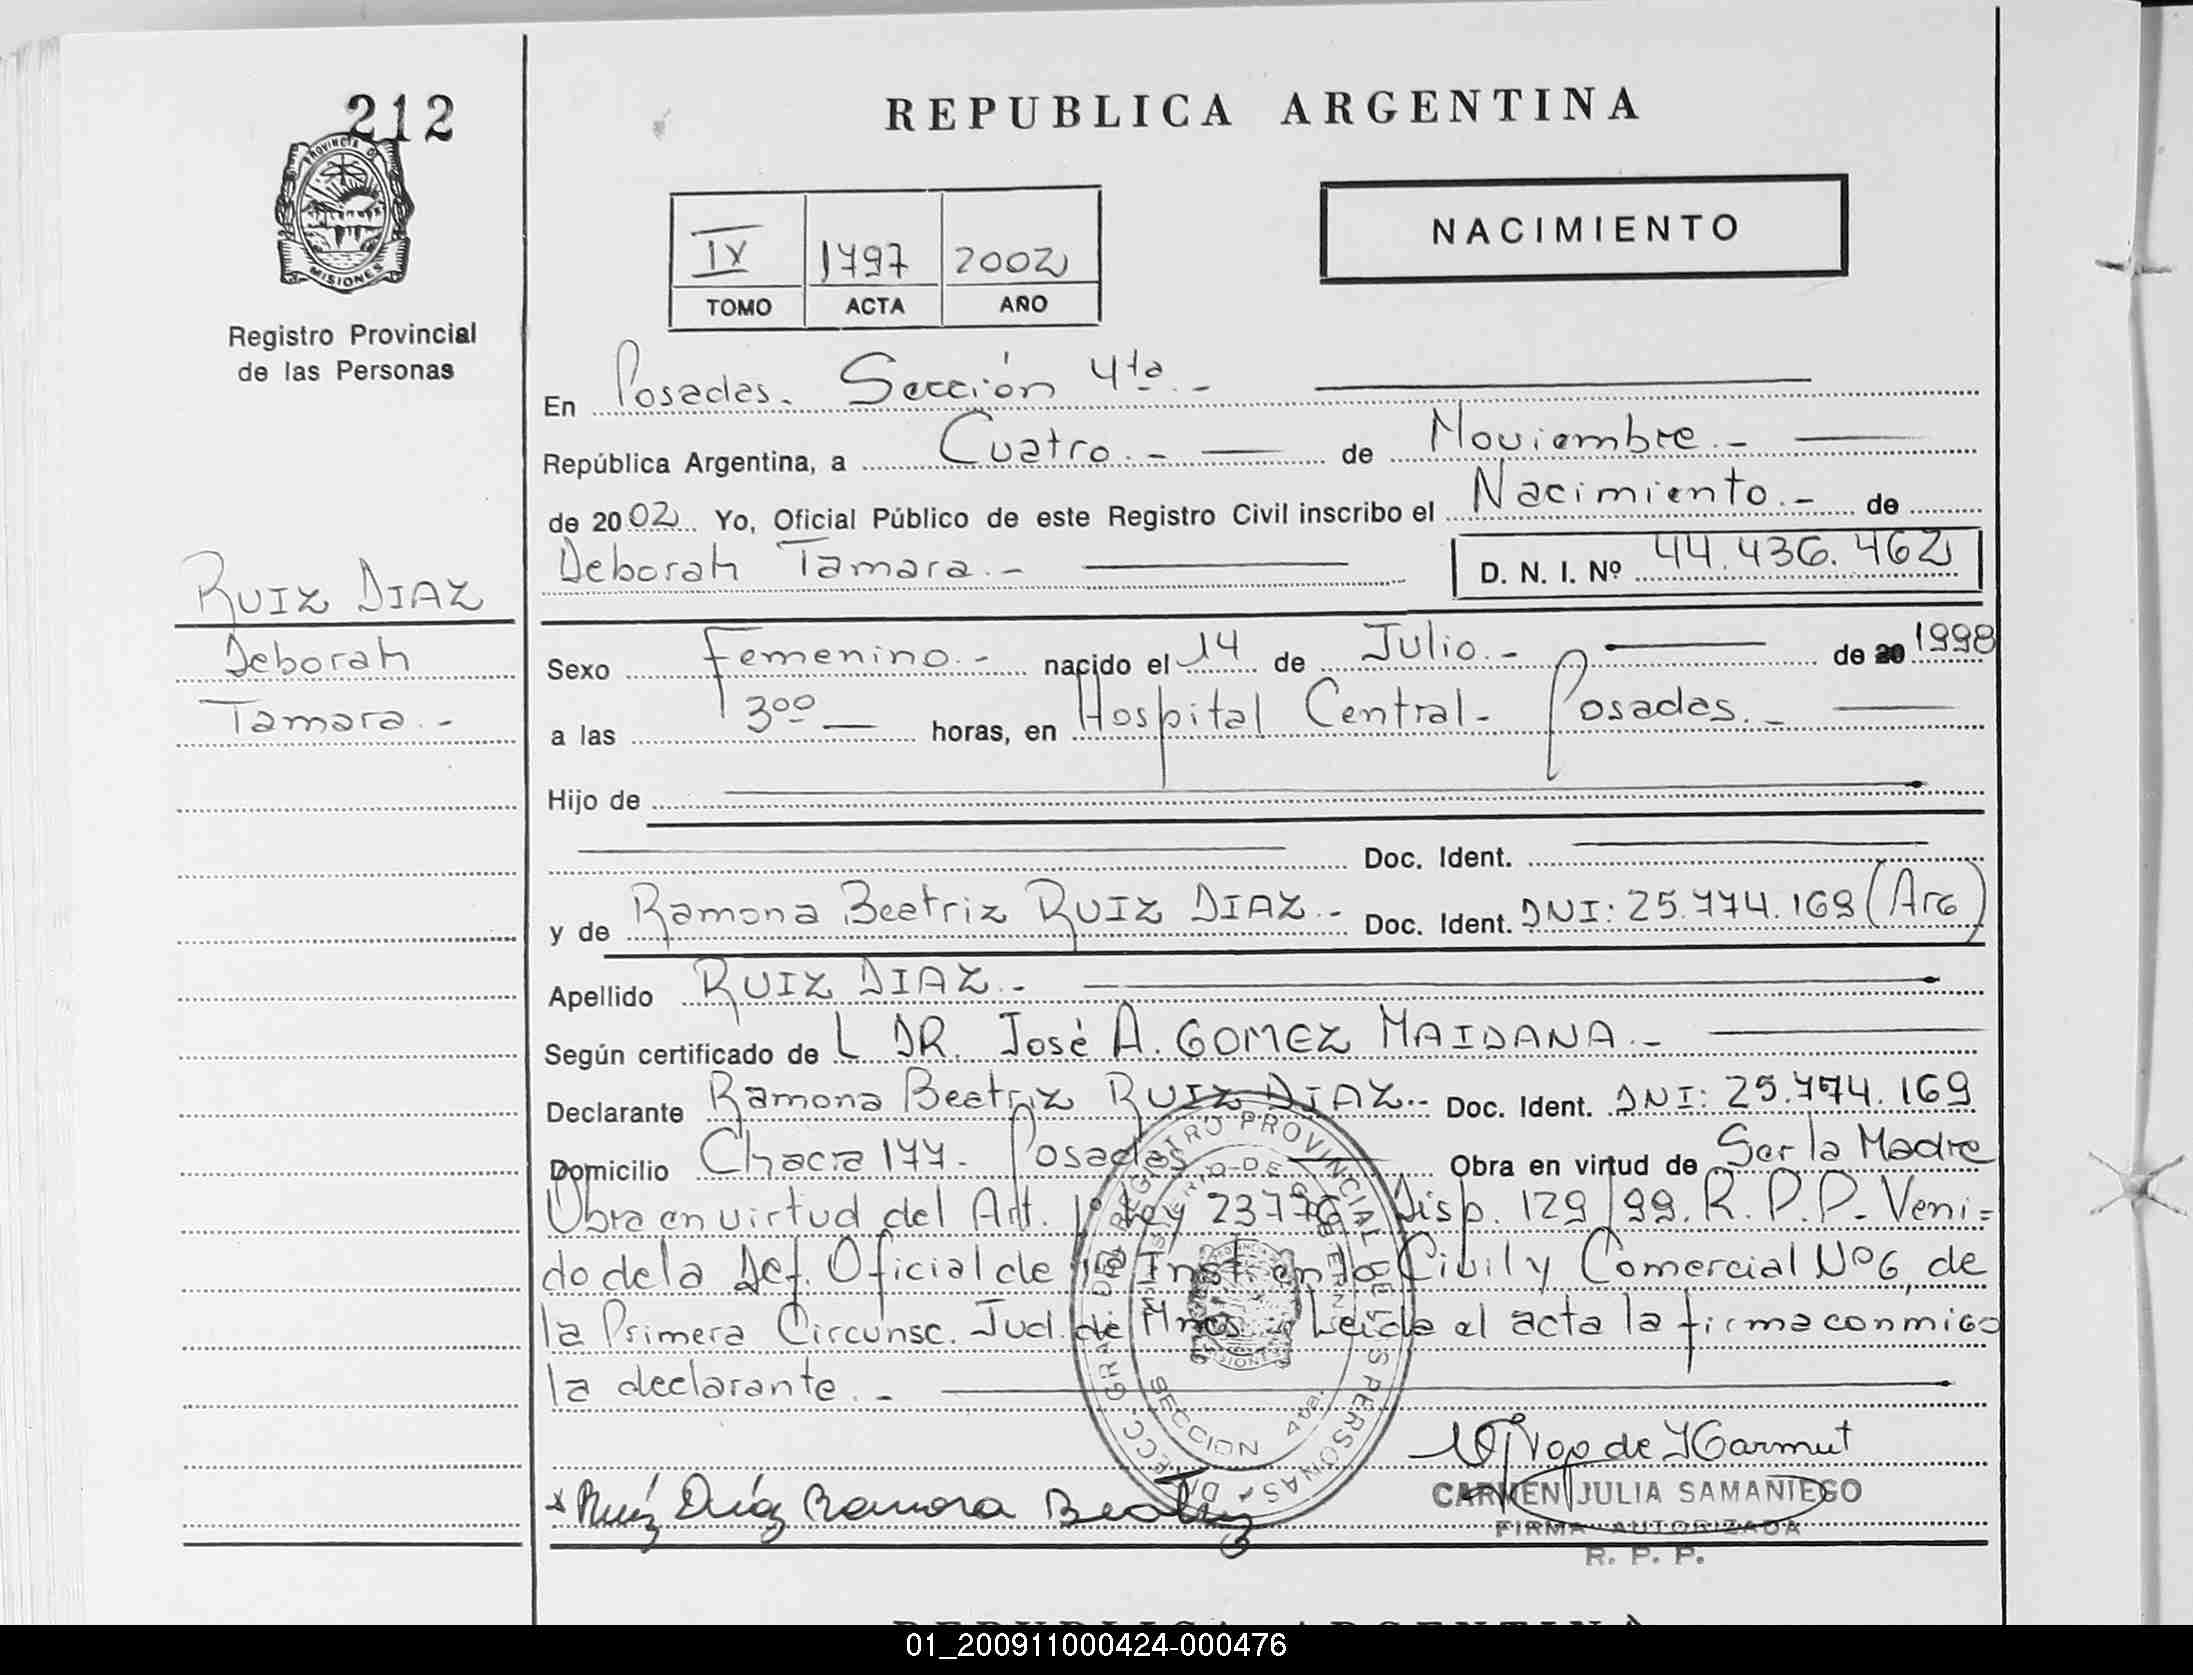 212
PROVINCIA D
MISIONES
Registro Provincial
de las Personas
REPUBLICA ARGENTINA
NACIMIENTO
IV 1797 2002
TOMO ACTA AÑO
En Posadas. Sección 4ta.-
República Argentina, a Cuatro.- de Noviembre.-
de 2002 Yo, Oficial Público de este Registro Civil inscribo el Nacimiento.- de
Deborah Tamara.- D. N. I. Nº 44.436.462
RUIZ DIAZ
Deborah
Tamara.-
Sexo Femenino.- nacido el 14 de Julio.- de 20 1998
a las 3 00 horas, en Hospital Central- Posadas.-
Hijo de
Doc. Ident.
y de Ramona Beatriz RUIZ DIAZ.- Doc. Ident. DNI: 25.774.169 (Arg)
Apellido RUIZ DIAZ.-
Según certificado de L DR. José A. GOMEZ MAIDANA.-
Declarante Ramona Beatriz RUIZ DIAZ.- Doc. Ident. DNI: 25.774.169
Domicilio Chacra 177- Posadas Obra en virtud de Ser la Madre
Obra en virtud del Art. 1º Ley 23776 Disp. 129/99. R.P.P- Veni=
do de la Def. Oficial de 1ª Inst. en lo Civil y Comercial Nº6, de
la Primera Circunsc. Jud. de Mnes. Leida el acta la firma conmigo
la declarante.-
REGISTRO PROVINCIAL DE LAS PERSONAS
SECCION 4ta.
Ruíz Díaz Ramona Beatriz
de Harmut
CARMEN JULIA SAMANIEGO
FIRMA AUTORIZADA
R. P. P.
REPUBLICA ARGENTINA
01_200911000424-000476